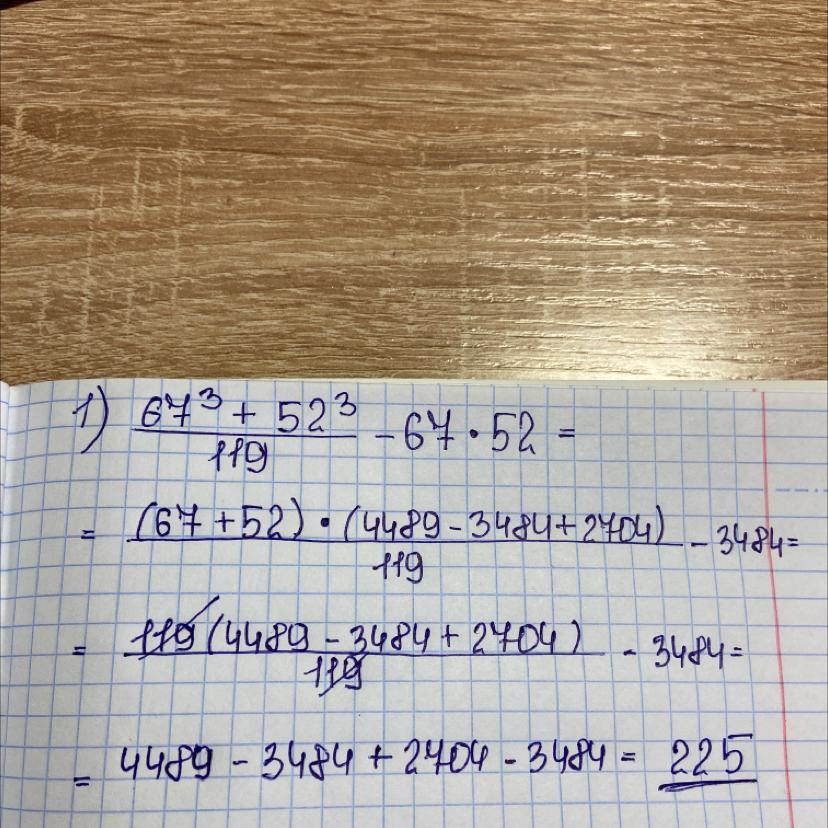 1) (67³ + 52³)/119 - 67 · 52 =
= ((67 + 52) · (4489 - 3484 + 2704))/119 - 3484 =
= (119 (4489 - 3484 + 2704))/119 - 3484 =
= 4489 - 3484 + 2704 - 3484 = 225